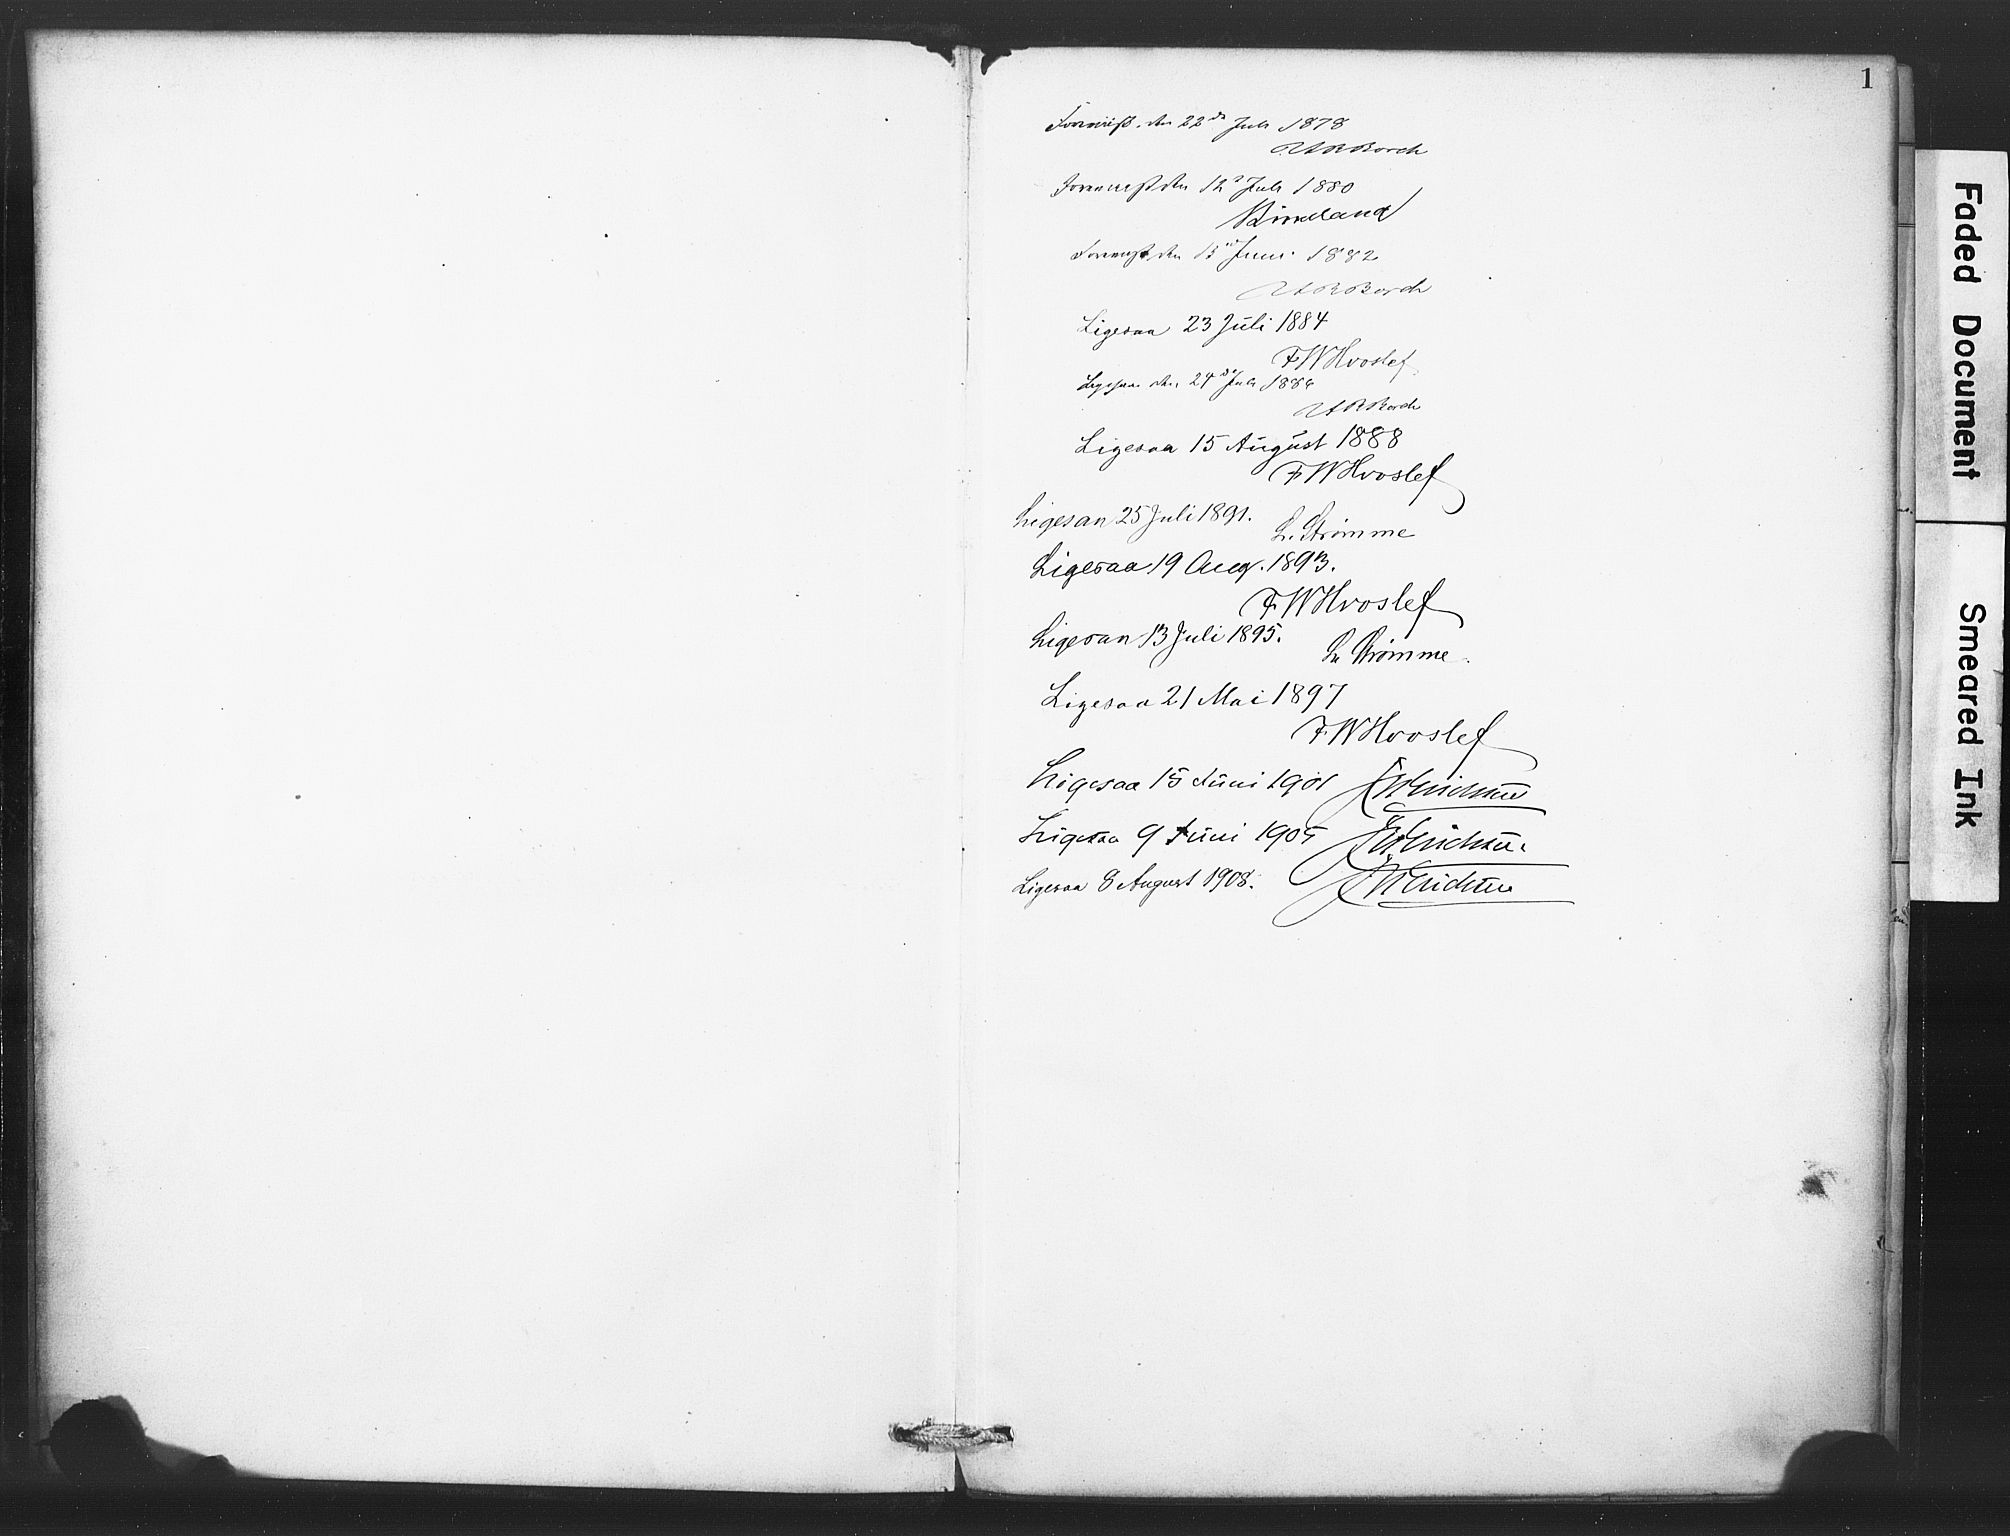 1
Forevist den 22de Juli 1878
Borch
Forevist den 12te Juli 1880
Birkeland
Forevist den 15de Juni 1882
Borch
Ligesaa 23 Juli 1884
FW Hvoslef
Ligesaa den 24de Juli 1886
Borch
Ligesaa 15 August 1888
FW Hvoslef
Ligesaa 25 Juli 1891.
L. Strømme
Ligesaa 19 Aug. 1893.
FW Hvoslef
Ligesaa 13 Juli 1895.
L. Strømme.
Ligesaa 21 Mai 1897
FW Hvoslef
Ligesaa 15 Juni 1901
Ligesaa 9 Juni 1905
Ligesaa 8 August 1908.
Faded Document
Smeared Ink